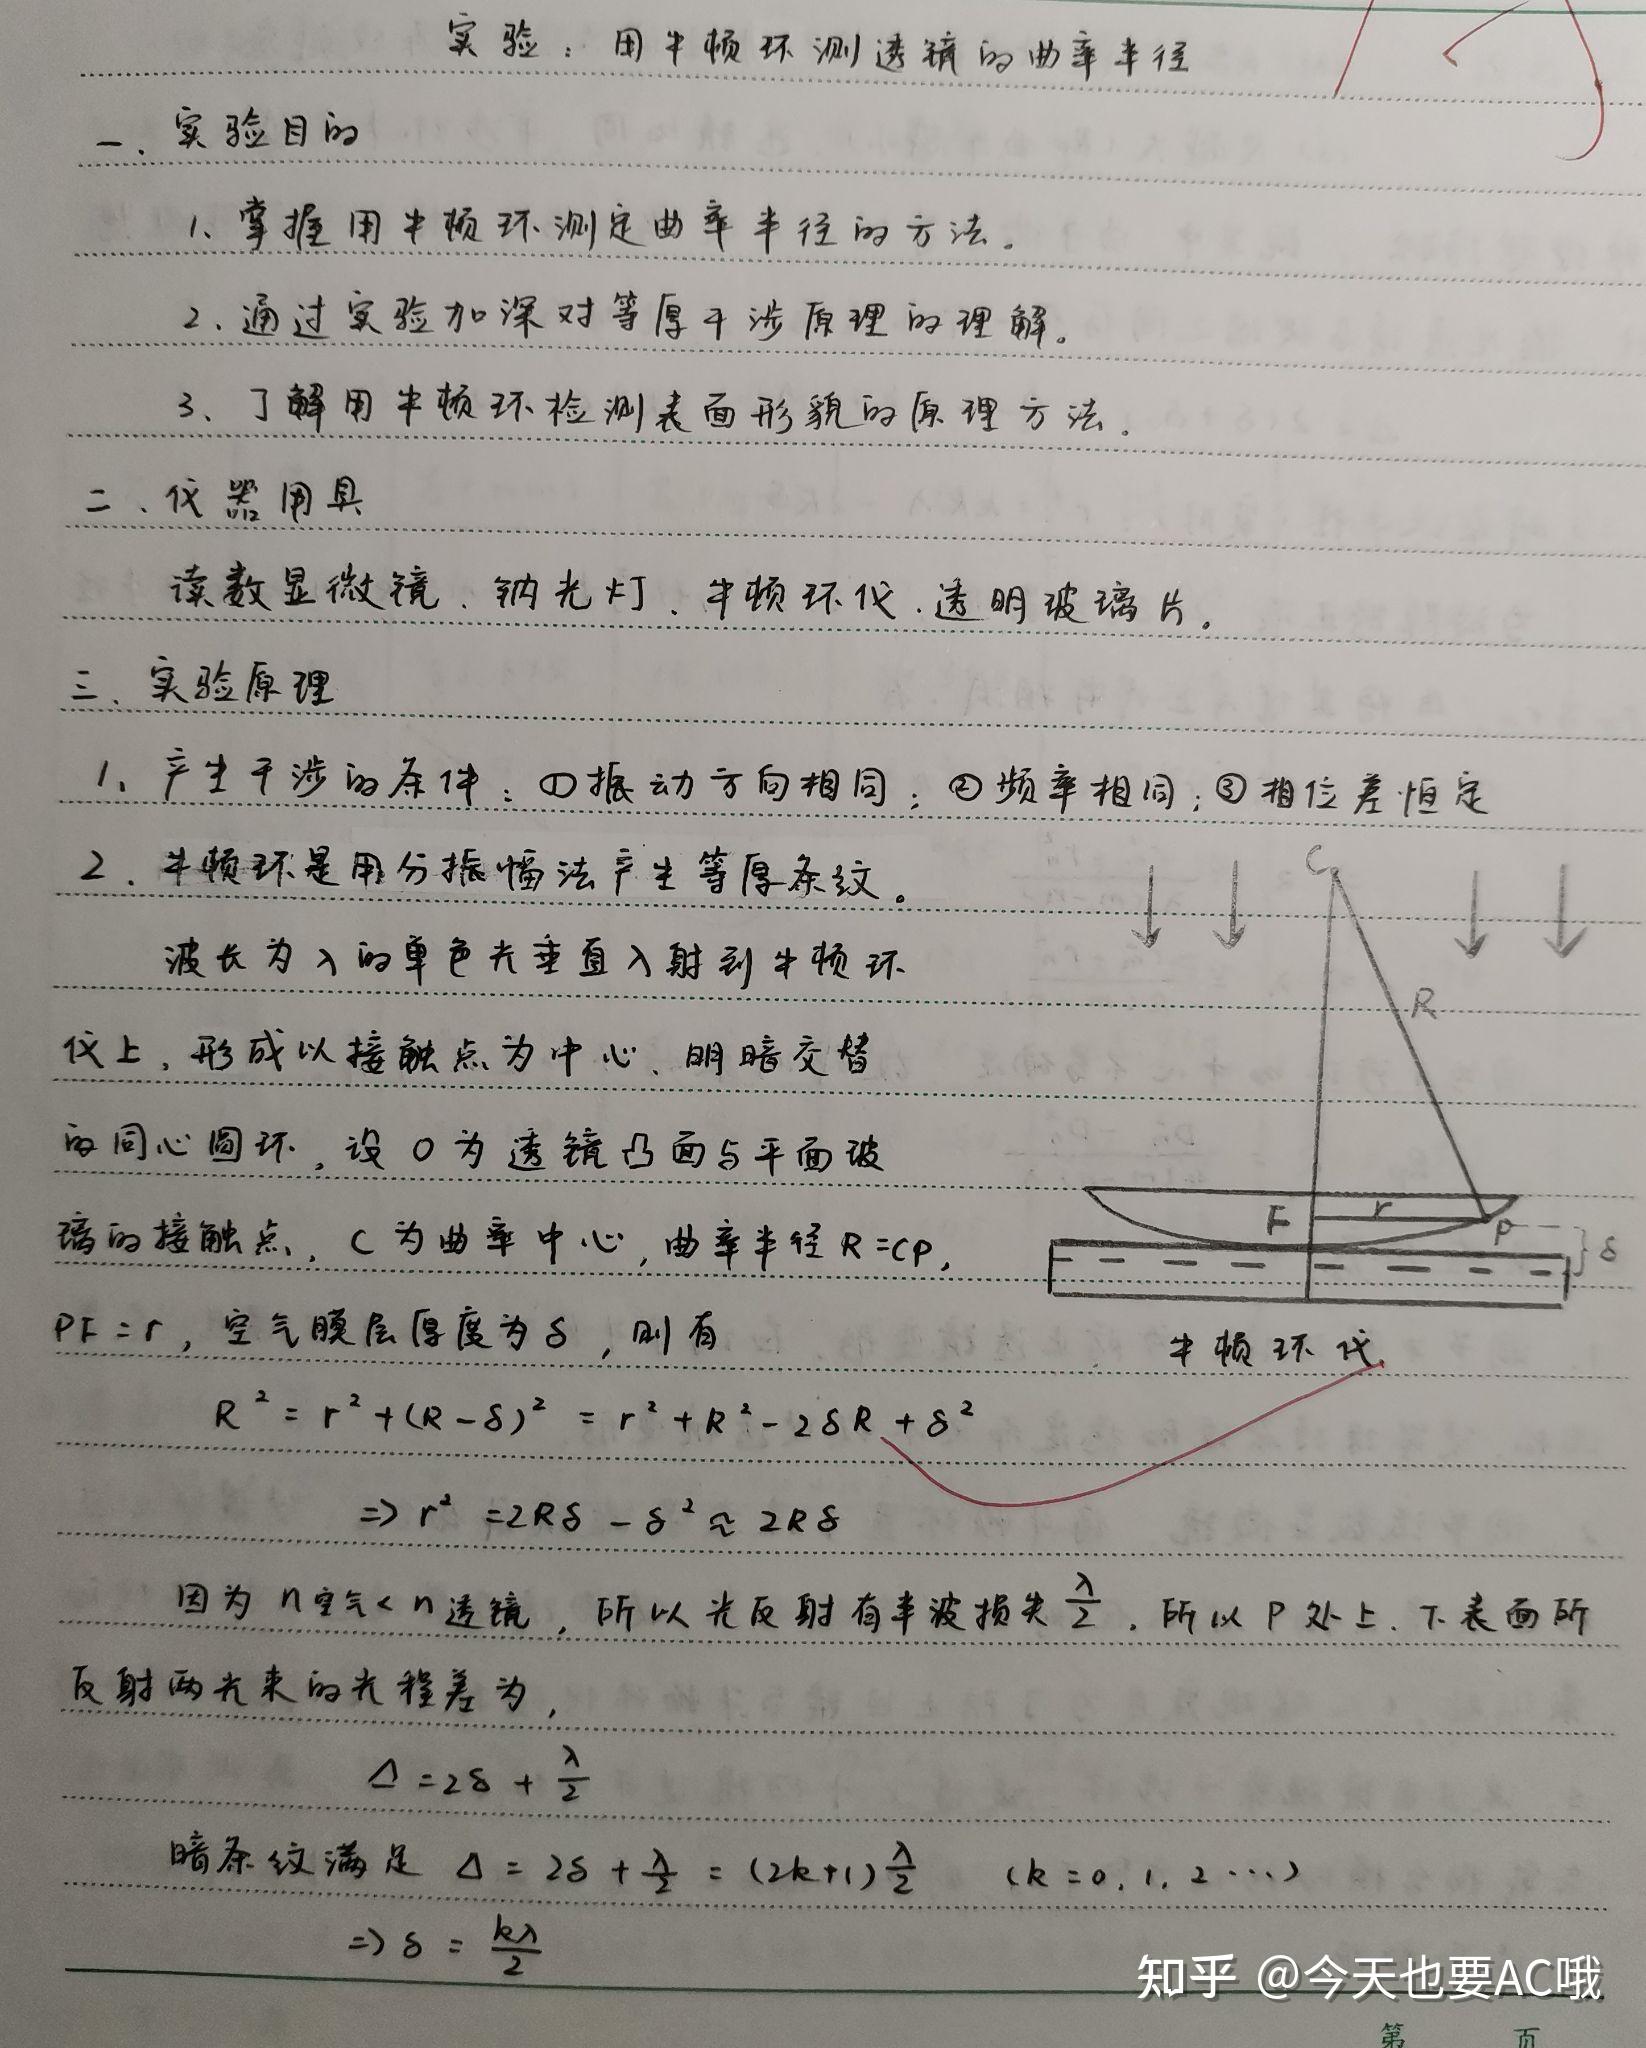 实验：用牛顿环测透镜的曲率半径
一、实验目的
1、掌握用牛顿环测定曲率半径的方法。
2、通过实验加深对等厚干涉原理的理解。
3、了解用牛顿环检测表面形貌的原理方法.
二、仪器用具
读数显微镜、钠光灯、牛顿环仪、透明玻璃片。
三、实验原理
1、产生干涉的条件：①振动方向相同；②频率相同；③相位差恒定
2、牛顿环是用分振幅法产生等厚条纹。
波长为λ的单色光垂直入射到牛顿环
仪上，形成以接触点为中心、明暗交替
的同心圆环，设O为透镜凸面与平面玻
璃的接触点，C为曲率中心，曲率半径R=CP，
PF=r，空气膜层厚度为δ，则有
C
R
F
r
P
δ
牛顿环仪
R²=r²+(R-δ)²=r²+R²-2δR+δ²
=>r²=2Rδ-δ²≈2Rδ
因为n空气<n透镜，所以光反射有半波损失λ/2，所以P处上、下表面所
反射两光束的光程差为，
Δ=2δ+λ/2
暗条纹满足 Δ=2δ+λ/2=(2k+1)λ/2 (k=0,1,2…)
=>δ=kλ/2
知乎 @今天也要AC哦
第 页